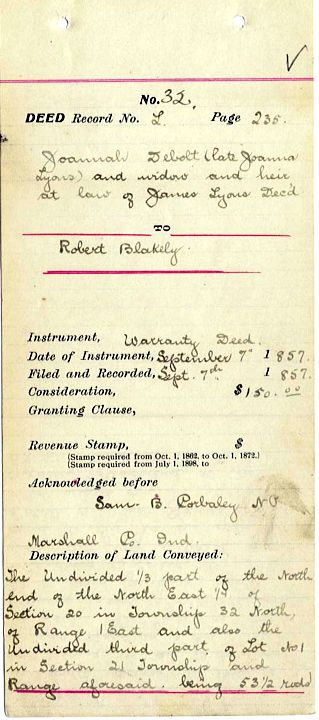 No. 32.
DEED Record No. L. Page 235.
Joannah Debolt (late Joanna
Lyons) and widow and heir
at law of James Lyons Dec'd
TO
Robert Blakely.
Instrument, Warranty Deed.
Date of Instrument, September 7" 1857.
Filed and Recorded, Sept. 7th 1857.
Consideration, $150.00
Granting Clause,
Revenue Stamp, $
(Stamp required from Oct. 1, 1862, to Oct. 1, 1872.)
(Stamp required from July 1, 1898, to
Acknowledged before
Sam. B. Corbaley N P
Marshall Co. Ind.
Description of Land Conveyed:
The Undivided 1/3 part of the North
end of the North East 1/4 of
Section 20 in Township 32 North,
of Range 1 East and also the
Undivided third part of Lot No 1
in Section 21 Township and
Range aforesaid. being 53 1/2 rods